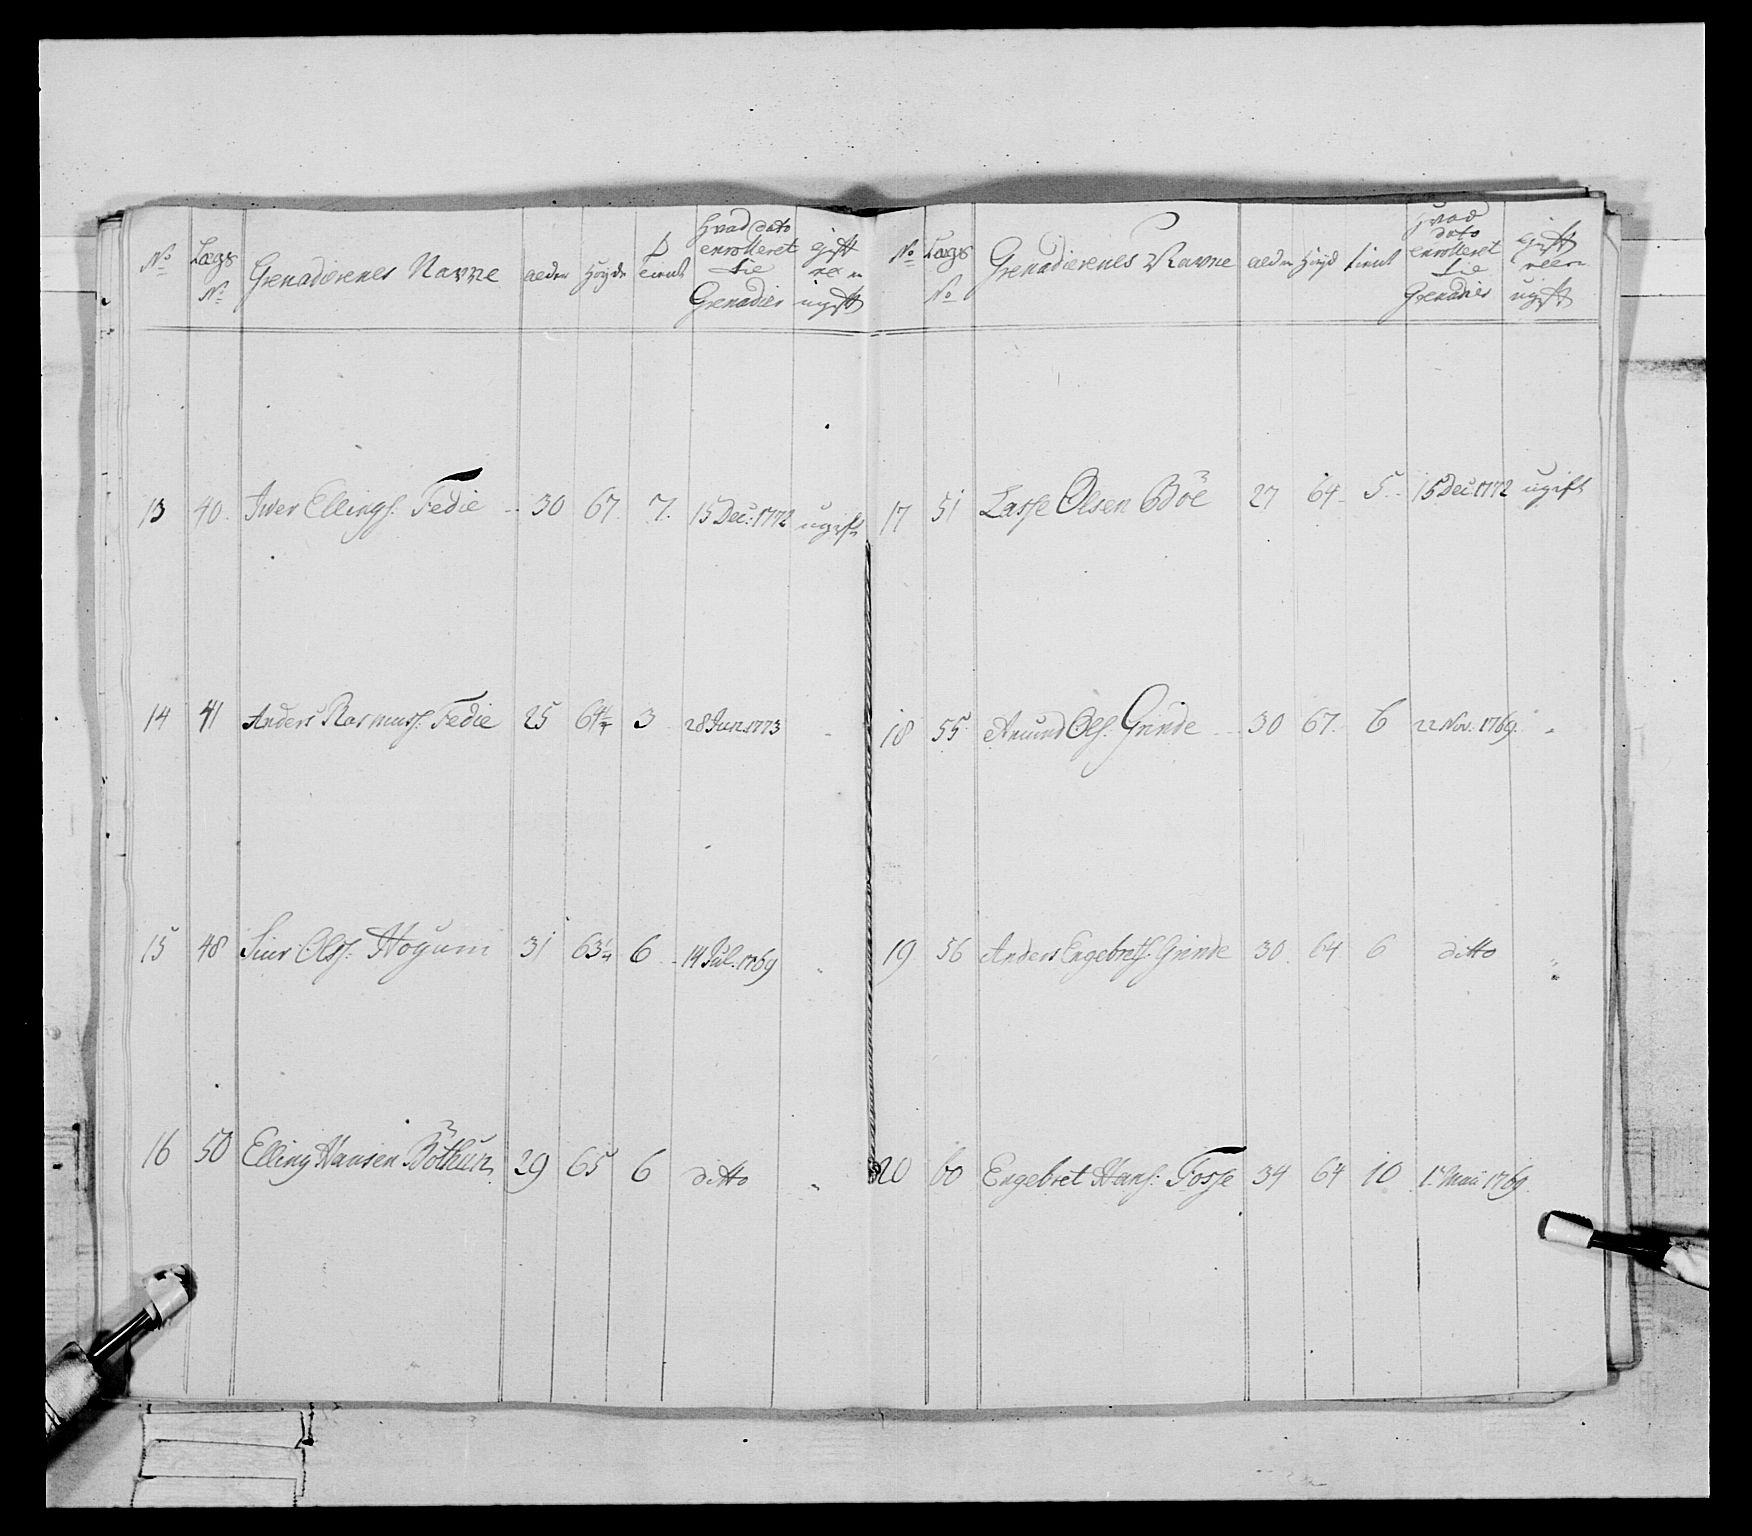 No Lægs No Grenadierenes Navne alder Høyde tient hvad dato enrolleret til Grenadier gift eller ugift
13 40. Iver Ellings. Fedie 30 67. 7. 15 Dec: 1772 ugift
14 41 Anders Rasmuss. Fedie 25 64 3 28 Jun. 1773 "
15 48 Siur Olss: Høyum 31 63¼ 6 14 Jul. 1769 "
16 50 Elling Hansen Böthun 29 65 6 ditto "
No Lægs No Grenadierenes Navne alder Høyd tient hvad dato enrolleret til Grenadier gift eller ugift
17 51 Lasse Olsen Böe 27 64 5 15 Dec: 1772 ugift
18 55 Amund Ols. Grinde 30 67. 6 22 Nov. 1769. "
19 56 Anders Engebrets. Grinde 30 64 6 ditto "
20 60 Engebret Hans: Fosse 34 64 10 1. Maii 1769.